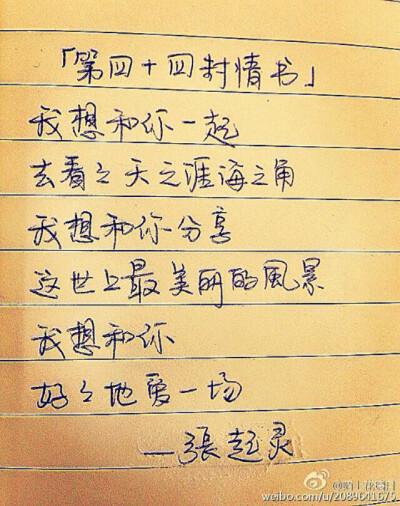 「第四十四封情书」
我想和你一起
去看々天之涯海之角
我想和你分享
这世上最美丽的風景
我想和你
好々地爱一场
—張起灵
weibo.com/u/2089641675